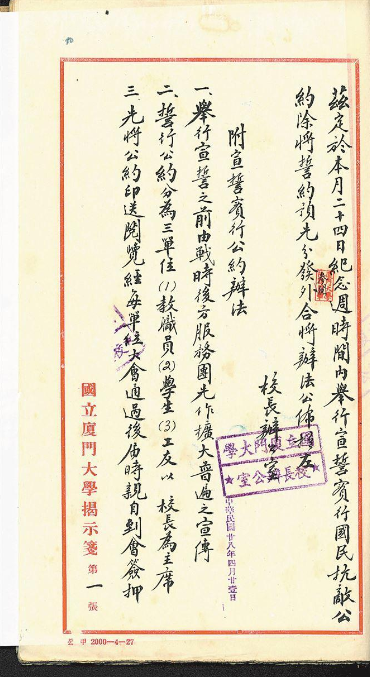 茲定於本月二十四日紀念週時間內舉行宣誓實行國民抗敵公
約除將誓約預先分發外合將辦法公佈週在
校長辦公室
國立廈門大學
★校長辦公室★
中華民國廿八年四月廿壹日
附宣誓實行公約辦法
一、舉行宣誓之前由戰時後方服務團先作擴大普遍之宣傳
二、誓行公約分為三單位(1)教職員(2)學生(3)工友以 校長為主席
三、先將公約印送閱覽經每單位大會通過後届時親自到會簽押
國立廈門大學揭示箋 第一張
甲 2000—4—27